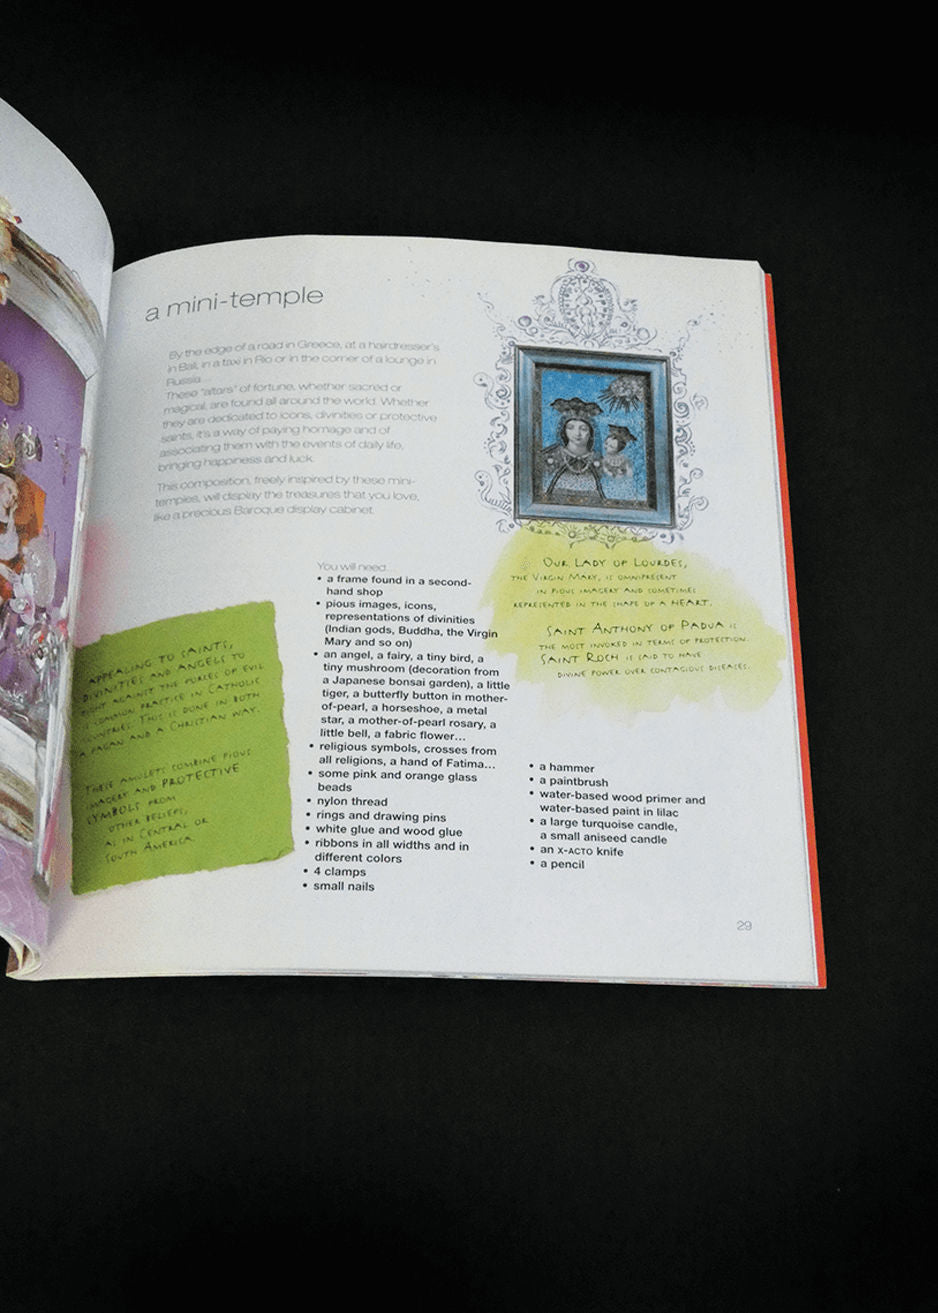 a mini-temple
By the edge of a road in Greece, at a hairdresser's
in Bali, in a taxi in Rio or in the corner of a lounge in
Russia...
These "altars" of fortune, whether sacred or
magical, are found all around the world. Whether
they are dedicated to icons, divinities or protective
saints, it's a way of paying homage and of
associating them with the events of daily life,
bringing happiness and luck.
This composition, freely inspired by these mini-
temples, will display the treasures that you love,
like a precious Baroque display cabinet.
APPEALING TO SAINTS,
DIVINITIES AND ANGELS TO
FIGHT AGAINST THE FORCES OF EVIL
IS COMMON PRACTICE IN CATHOLIC
COUNTRIES. THIS IS DONE IN BOTH
A PAGAN AND A CHRISTIAN WAY.
THESE AMULETS COMBINE PIOUS
IMAGERY AND PROTECTIVE
SYMBOLS FROM
OTHER BELIEFS,
AS IN CENTRAL OR
SOUTH AMERICA.
You will need...
• a frame found in a second-
hand shop
• pious images, icons,
representations of divinities
(Indian gods, Buddha, the Virgin
Mary and so on)
• an angel, a fairy, a tiny bird, a
tiny mushroom (decoration from
a Japanese bonsai garden), a little
tiger, a butterfly button in mother-
of-pearl, a horseshoe, a metal
star, a mother-of-pearl rosary, a
little bell, a fabric flower...
• religious symbols, crosses from
all religions, a hand of Fatima...
• some pink and orange glass
beads
• nylon thread
• rings and drawing pins
• white glue and wood glue
• ribbons in all widths and in
different colors
• 4 clamps
• small nails
OUR LADY OF LOURDES,
THE VIRGIN MARY, IS OMNIPRESENT
IN PIOUS IMAGERY AND SOMETIMES
REPRESENTED IN THE SHAPE OF A HEART.
SAINT ANTHONY OF PADUA IS
THE MOST INVOKED IN TERMS OF PROTECTION.
SAINT ROCH IS SAID TO HAVE
DIVINE POWER OVER CONTAGIOUS DISEASES.
• a hammer
• a paintbrush
• water-based wood primer and
water-based paint in lilac
• a large turquoise candle,
a small aniseed candle
• an X-ACTO knife
• a pencil
29